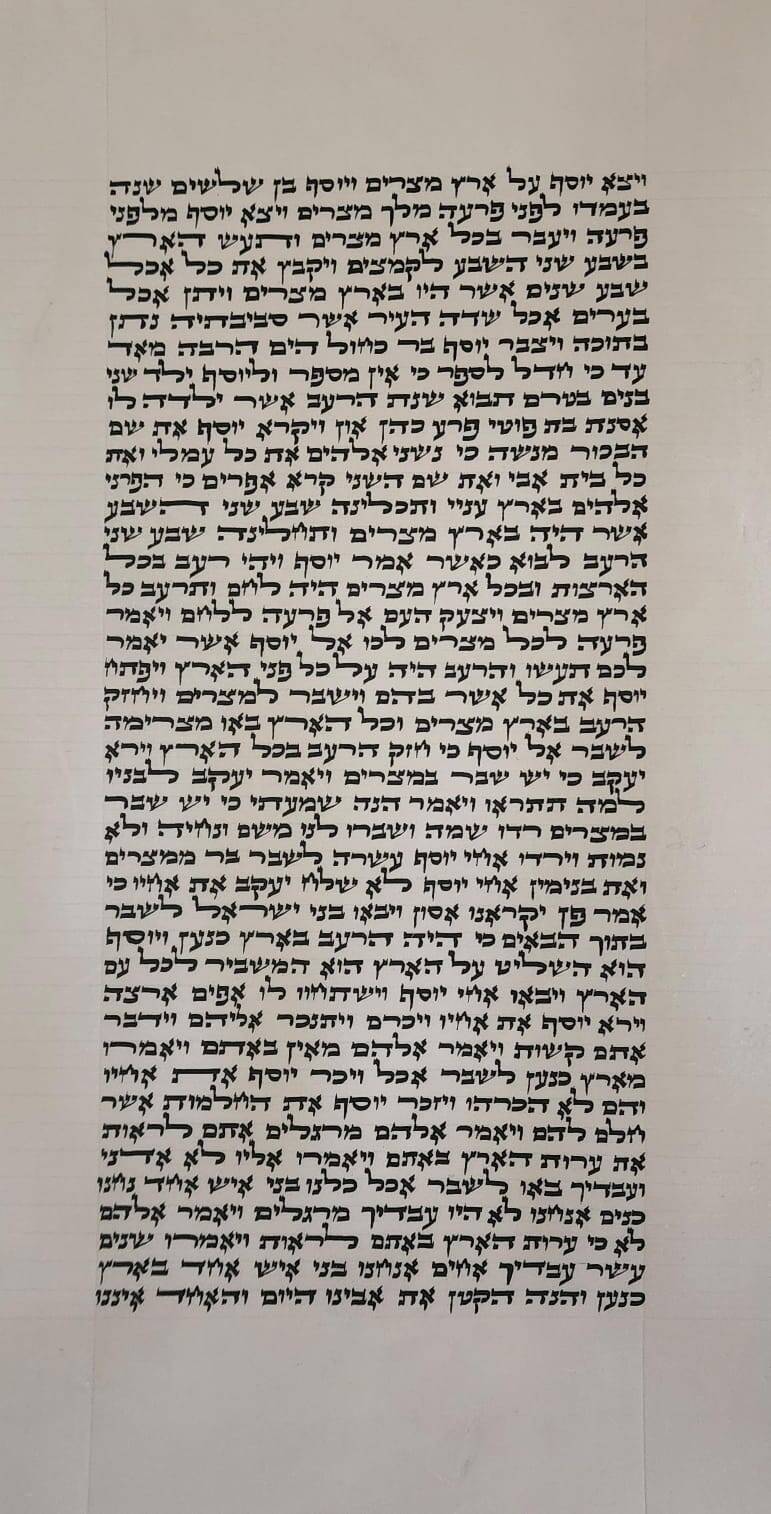 ויצא יוסף על ארץ מצרים ויוסף בן שלשים שנה
בעמדו לפני פרעה מלך מצרים ויצא יוסף מלפני
פרעה ויעבר בכל ארץ מצרים ותעש הארץ
בשבע שני השבע לקמצים ויקבץ את כל אכל
שבע שנים אשר היו בארץ מצרים ויתן אכל
בערים אכל שדה העיר אשר סביבתיה נתן
בתוכה ויצבר יוסף בר כחול הים הרבה מאד
עד כי חדל לספר כי אין מספר וליוסף ילד שני
בנים בטרם תבוא שנת הרעב אשר ילדה לו
אסנת בת פוטי פרע כהן און ויקרא יוסף את שם
הבכור מנשה כי נשני אלהים את כל עמלי ואת
כל בית אבי ואת שם השני קרא אפרים כי הפרני
אלהים בארץ עניי ותכלינה שבע שני השבע
אשר היה בארץ מצרים ותחלינה שבע שני
הרעב לבוא כאשר אמר יוסף ויהי רעב בכל
הארצות ובכל ארץ מצרים היה לחם ותרעב כל
ארץ מצרים ויצעק העם אל פרעה ללחם ויאמר
פרעה לכל מצרים לכו אל יוסף אשר יאמר
לכם תעשו והרעב היה על כל פני הארץ ויפתח
יוסף את כל אשר בהם וישבר למצרים ויחזק
הרעב בארץ מצרים וכל הארץ באו מצרימה
לשבר אל יוסף כי חזק הרעב בכל הארץ וירא
יעקב כי יש שבר במצרים ויאמר יעקב לבניו
למה תתראו ויאמר הנה שמעתי כי יש שבר
במצרים רדו שמה ושברו לנו משם ונחיה ולא
נמות וירדו אחי יוסף עשרה לשבר בר ממצרים
ואת בנימין אחי יוסף לא שלח יעקב את אחיו כי
אמר פן יקראנו אסון ויבאו בני ישראל לשבר
בתוך הבאים כי היה הרעב בארץ כנען ויוסף
הוא השליט על הארץ הוא המשביר לכל עם
הארץ ויבאו אחי יוסף וישתחוו לו אפים ארצה
וירא יוסף את אחיו ויכרם ויתנכר אליהם וידבר
אתם קשות ויאמר אלהם מאין באתם ויאמרו
מארץ כנען לשבר אכל ויכר יוסף את אחיו
והם לא הכרהו ויזכר יוסף את החלמות אשר
חלם להם ויאמר אלהם מרגלים אתם לראות
את ערות הארץ באתם ויאמרו אליו לא אדני
ועבדיך באו לשבר אכל כלנו בני איש אחד נחנו
כנים אנחנו לא היו עבדיך מרגלים ויאמר אלהם
לא כי ערות הארץ באתם לראות ויאמרו שנים
עשר עבדיך אחים אנחנו בני איש אחד בארץ
כנען והנה הקטן את אבינו היום והאחד איננו